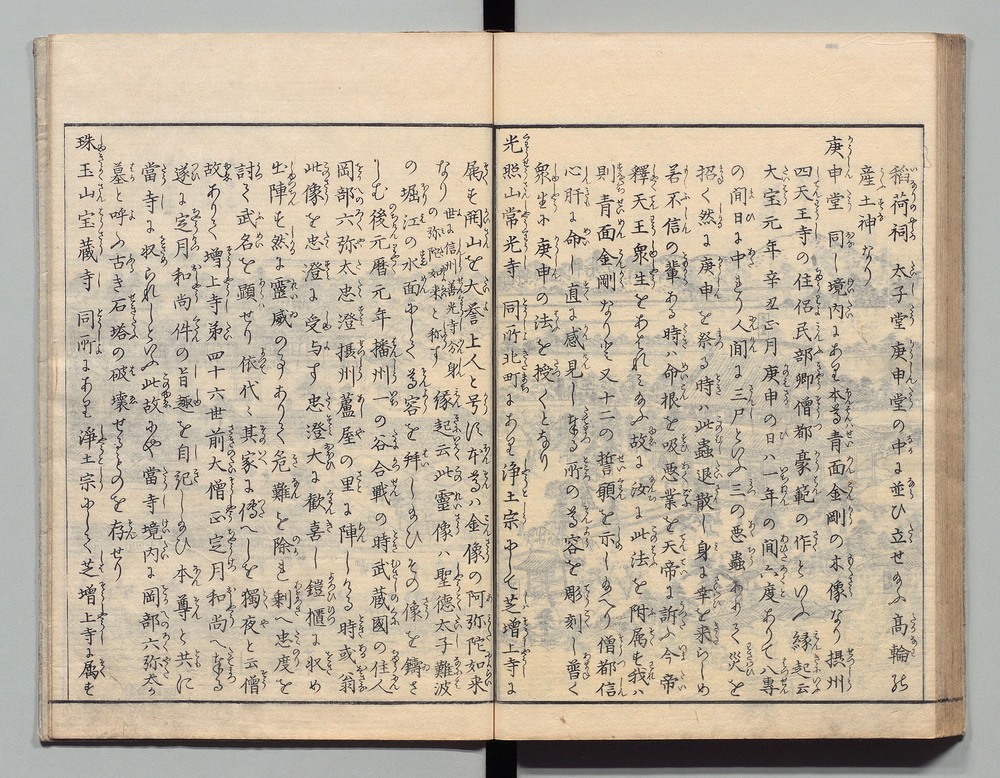 稲荷祠 太子堂庚申堂の中に並ひ立せ給ふ高輪の
産土神なり
庚申堂 同し境内にあり本尊青面金剛の木像なり摂州
四天王寺の住侶民部卿僧都豪範の作といふ縁起云
大宝元年辛丑正月庚申の日ハ一年の間六度ありて八専
の間日に中まり人間に三尸といふ三の悪蟲ありて災を
招く然に庚申を祭る時ハ此蟲退散し身に幸を来らしめ
若不信の輩ある時ハ命根を吸悪業を天帝に訴ふ今帝
釋天王衆生をあはれミ給ふ故に汝に此法を附属す我ハ
則青面金剛なりと又十二の誓願を示し給へり僧都信
心肝に命し直に感見し奉る所の尊容を彫刻し普く
衆生に庚申の法を授くとなり
光照山常光寺 同所北町にあり浄土宗にして芝増上寺に
属す開山を大誉上人と号す本尊ハ金像の阿弥陀如来
なり 世に信州善光寺分身の弥陀如来と称す 縁起云此霊像ハ聖徳太子難波
の堀江の水面にして尊容を拜し給ひその像を鋳さ
しむ後元暦元年播州一の谷合戦の時武蔵國の住人
岡部六弥太忠澄摂州蘆屋の里に陣しける時或翁
此像を忠澄に受与す忠澄大に歓喜し鎧櫃に収め
出陣す然に霊威のるありて危難を除き剰へ忠度を
討て武名を顕せり依代々其家に傳へしを獨夜と云僧
故ありて増上寺第四十六世前大僧正定月和尚へ奉る
遂に定月和尚件の旨趣を自記し給ひ本尊と共に
當寺に収られしといふ此故にや當寺境内に岡部六弥太か
墓と呼ふ古き石塔の破壊せるものを存せり
珠玉山宝蔵寺 同所にあり浄土宗にして芝増上寺に属す